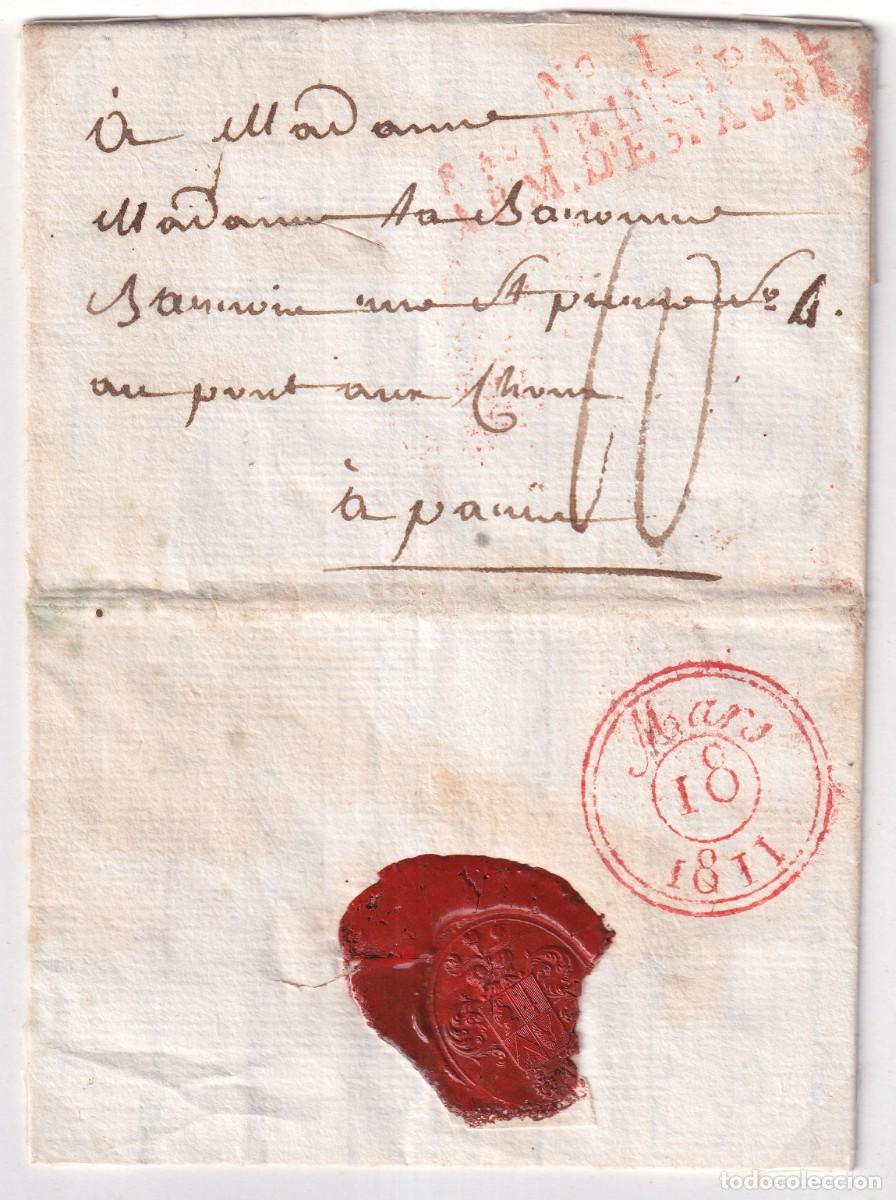 No 1
Bau PRINCIPAL
ARM. D'ESPAGNE
à Madame
Madame la Baronne
rue St pierre No 4.
au pont aux Choux
à paris
Mars
18
1811
todocoleccion